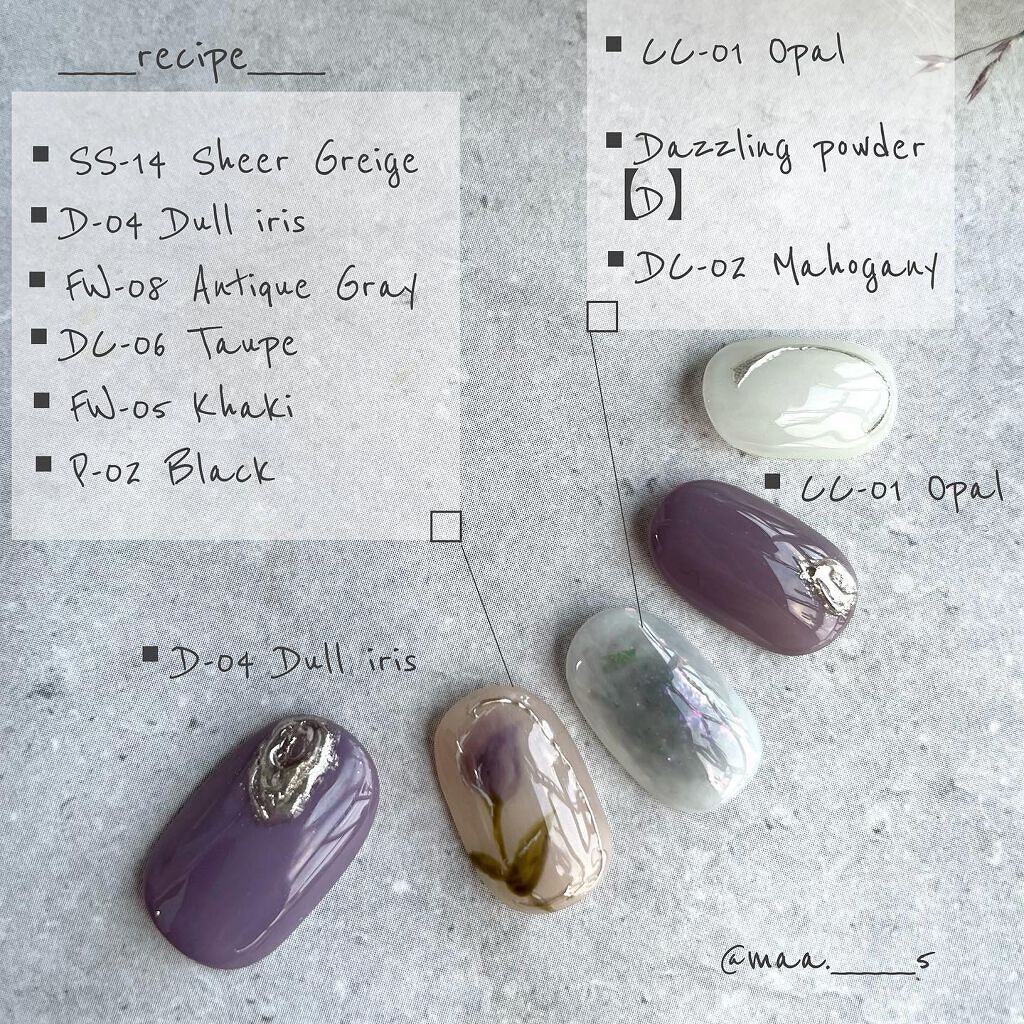 ____recipe____
■ SS-14 Sheer Greige
■ D-04 Dull iris
■ FW-08 Antique Gray
■ DC-06 Taupe
■ FW-05 Khaki
■ P-02 Black
■ CC-01 Opal
■ Dazzling powder
【D】
■ DC-02 Mahogany
■ CC-01 Opal
■ D-04 Dull iris
@maa._____s